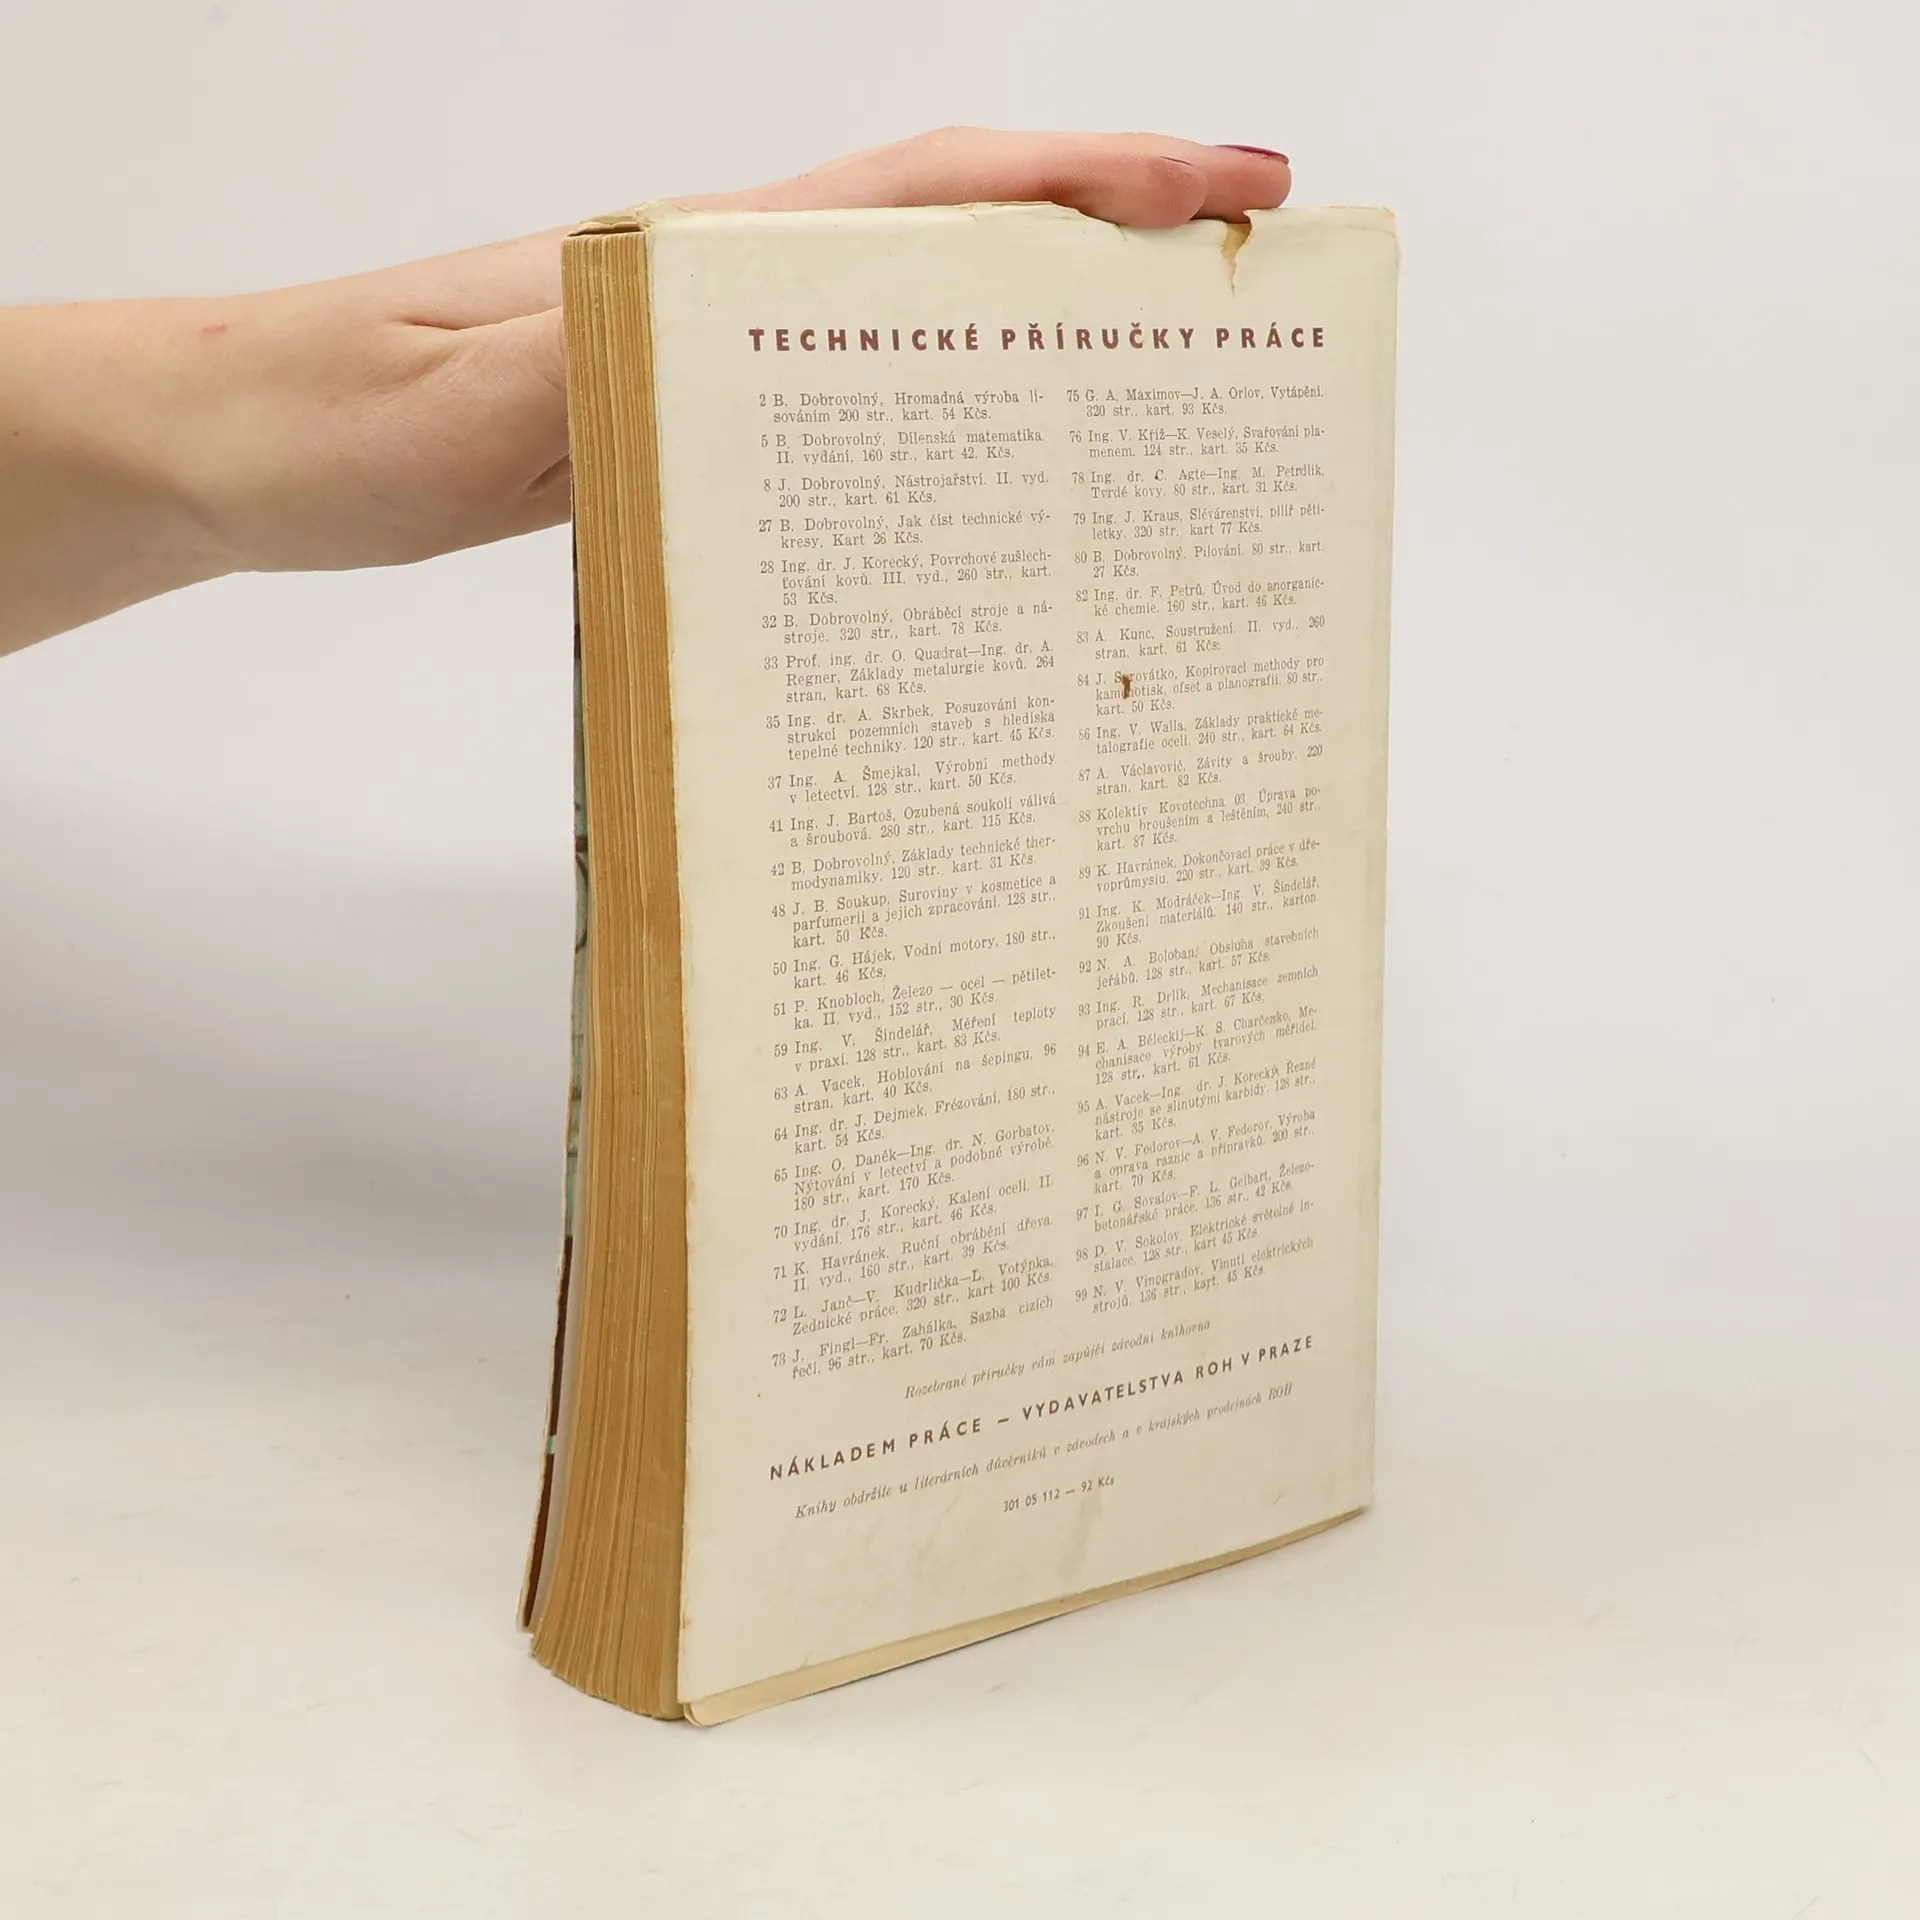 TECHNICKÉ PŘÍRUČKY PRÁCE
2 B. Dobrovolný, Hromadná výroba li-
sováním 200 str., kart. 54 Kčs.
5 B. Dobrovolný, Dílenská matematika.
II. vydání, 160 str., kart 42, Kčs.
8 J. Dobrovolný, Nástrojařství. II. vyd.
200 str., kart. 61 Kčs.
27 B. Dobrovolný, Jak číst technické vý-
kresy, Kart 26 Kčs.
28 Ing. dr. J. Korecký, Povrchové zušlech-
ťování kovů. III. vyd., 260 str., kart.
53 Kčs.
32 B. Dobrovolný, Obráběcí stroje a ná-
stroje. 320 str., kart. 78 Kčs.
33 Prof. ing. dr. O. Quadrat—Ing. dr. A.
Regner, Základy metalurgie kovů. 264
stran, kart. 68 Kčs.
35 Ing. dr. A. Skrbek, Posuzování kon-
strukcí pozemních staveb s hlediska
tepelné techniky. 120 str., kart. 45 Kčs.
37 Ing. A. Šmejkal, Výrobní methody
v letectví. 128 str., kart. 50 Kčs.
41 Ing. J. Bartoš, Ozubená soukolí válivá
a šroubová. 280 str., kart. 115 Kčs.
42 B. Dobrovolný, Základy technické ther-
modynamiky. 120 str., kart. 31 Kčs.
48 J. B. Soukup, Suroviny v kosmetice a
parfumerii a jejich zpracování. 128 str.,
kart. 50 Kčs.
50 Ing. G. Hájek, Vodní motory, 180 str.,
kart. 46 Kčs.
51 P. Knobloch, Železo — ocel — pětilet-
ka. II. vyd., 152 str., 30 Kčs.
59 Ing. V. Šindelář, Měření teploty
v praxi. 128 str., kart. 83 Kčs.
63 A. Vacek, Hoblování na šepingu. 96
stran, kart. 40 Kčs.
64 Ing. dr. J. Dejmek, Frézování, 180 str.,
kart. 54 Kčs.
65 Ing. O. Daněk—Ing. dr. N. Gorbatov,
Nýtování v letectví a podobné výrobě.
180 str., kart. 170 Kčs.
70 Ing. dr. J. Korecký, Kalení oceli. II.
vydání, 176 str., kart. 46 Kčs.
71 K. Havránek, Ruční obrábění dřeva.
II. vyd., 160 str., kart. 39 Kčs.
72 L. Janč—V. Kudrlička—L. Votýpka,
Zednické práce. 320 str., kart 100 Kčs.
73 J. Fingl—Fr. Zahálka, Sazba cizích
řečí. 96 str., kart. 70 Kčs.
75 G. A. Maximov—J. A. Orlov, Vytápění.
320 str., kart. 93 Kčs.
76 Ing. V. Kříž—K. Veselý, Svařování pla-
menem. 124 str., kart. 35 Kčs.
78 Ing. dr. C. Agte—Ing. M. Petrdlík,
Tvrdé kovy. 80 str., kart. 31 Kčs.
79 Ing. J. Kraus, Slévárenství, pilíř pěti-
letky. 320 str., kart 77 Kčs.
80 B. Dobrovolný, Pilování. 80 str., kart.
27 Kčs.
82 Ing. dr. F. Petrů, Úvod do anorganic-
ké chemie. 160 str., kart. 46 Kčs.
83 A. Kunc, Soustružení. II. vyd., 260
stran, kart. 61 Kčs.
84 J. Syrovátko, Kopírovací methody pro
kamenotisk, ofset a planografii. 80 str.,
kart. 50 Kčs.
86 Ing. V. Walla, Základy praktické me-
talografie oceli. 240 str., kart. 64 Kčs.
87 A. Václavovič, Závity a šrouby. 220
stran, kart. 82 Kčs.
88 Kolektiv Kovotechna 03, Úprava po-
vrchu broušením a leštěním. 240 str.,
kart. 87 Kčs.
89 K. Havránek, Dokončovací práce v dře-
voprůmyslu. 220 str., kart. 39 Kčs.
91 Ing. K. Modráček—Ing. V. Šindelář,
Zkoušení materiálů. 140 str., karton.
90 Kčs.
92 N. A. Boloban, Obsluha stavebních
jeřábů. 128 str., kart. 57 Kčs.
93 Ing. R. Drlík, Mechanisace zemních
prací. 128 str., kart. 67 Kčs.
94 E. A. Běleckij—K. S. Charčenko, Me-
chanisace výroby tvarových měřidel.
128 str., kart. 61 Kčs.
95 A. Vacek—Ing. dr. J. Korecký, Řezné
nástroje se slinutými karbidy. 128 str.,
kart. 35 Kčs.
96 N. V. Fedorov—A. V. Fedorov, Výroba
a oprava raznic a přípravků. 200 str.,
kart. 70 Kčs.
97 I. G. Sovalov—F. L. Gelbart, Železo-
betonářské práce. 136 str., 42 Kčs.
98 D. V. Sokolov, Elektrické světelné in-
stalace. 128 str., kart 45 Kčs.
99 N. V. Vinogradov, Vinutí elektrických
strojů. 136 str., kart. 45 Kčs.
Rozebrané příručky vám zapůjčí závodní knihovna
NÁKLADEM PRÁCE — VYDAVATELSTVA ROH V PRAZE
Knihy obdržíte u literárních důvěrníků v závodech a v krajských prodejnách ROH
301 05 112 — 92 Kčs